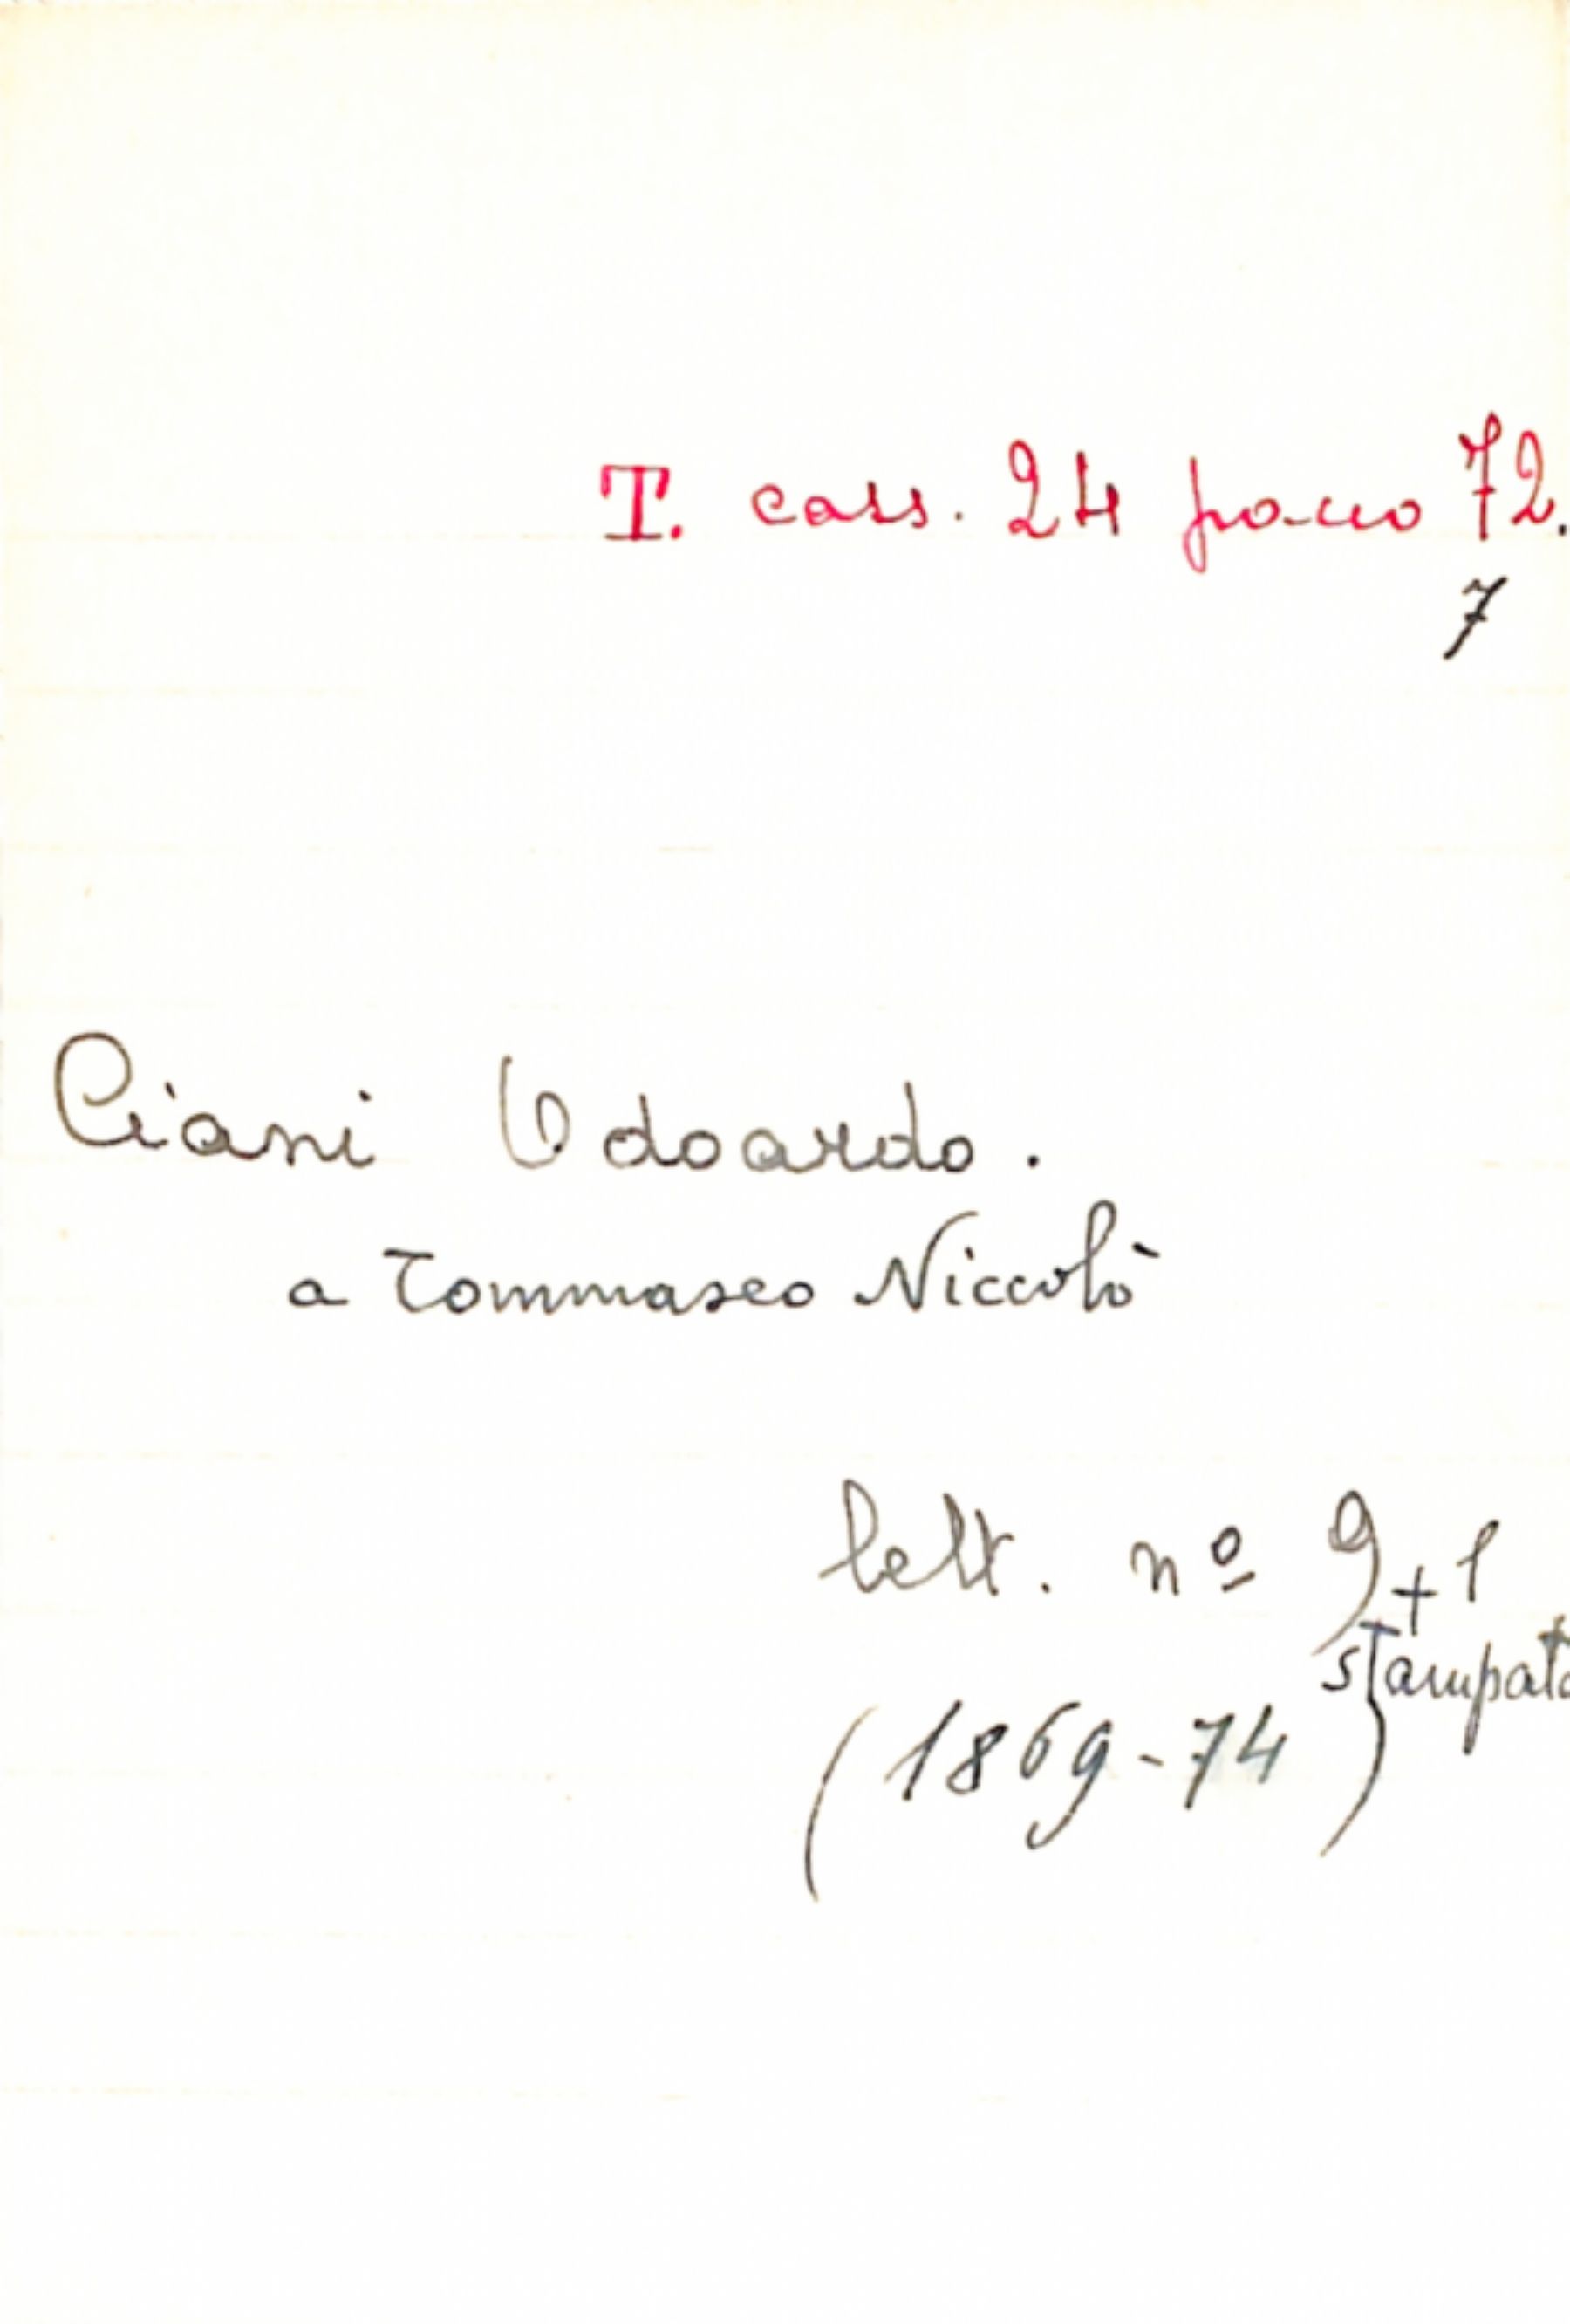 T. cass. 24 pacco 72.
7
Ciani Odoardo.
a Tommaseo Niccolò
lett. nº 9+1
stampato
(1869-74)